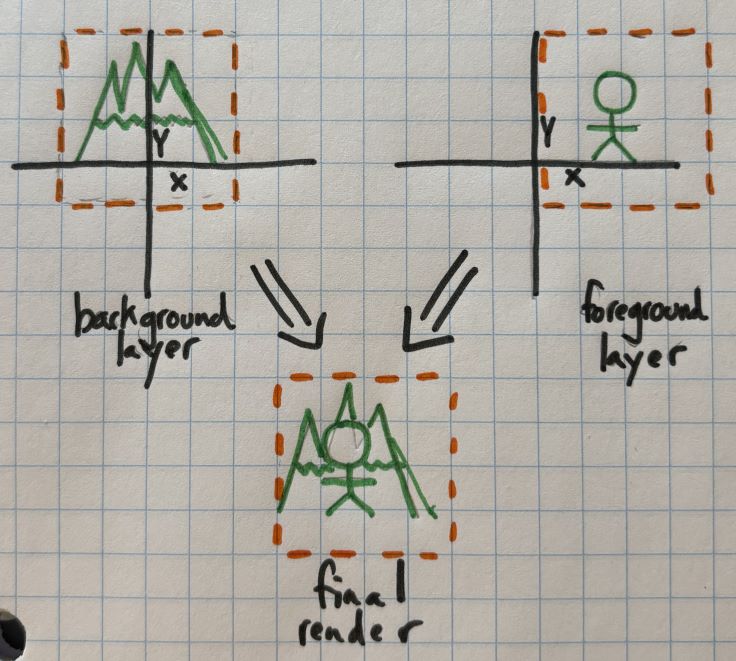 Y
x
Y
x
background
layer
foreground
layer
final
render